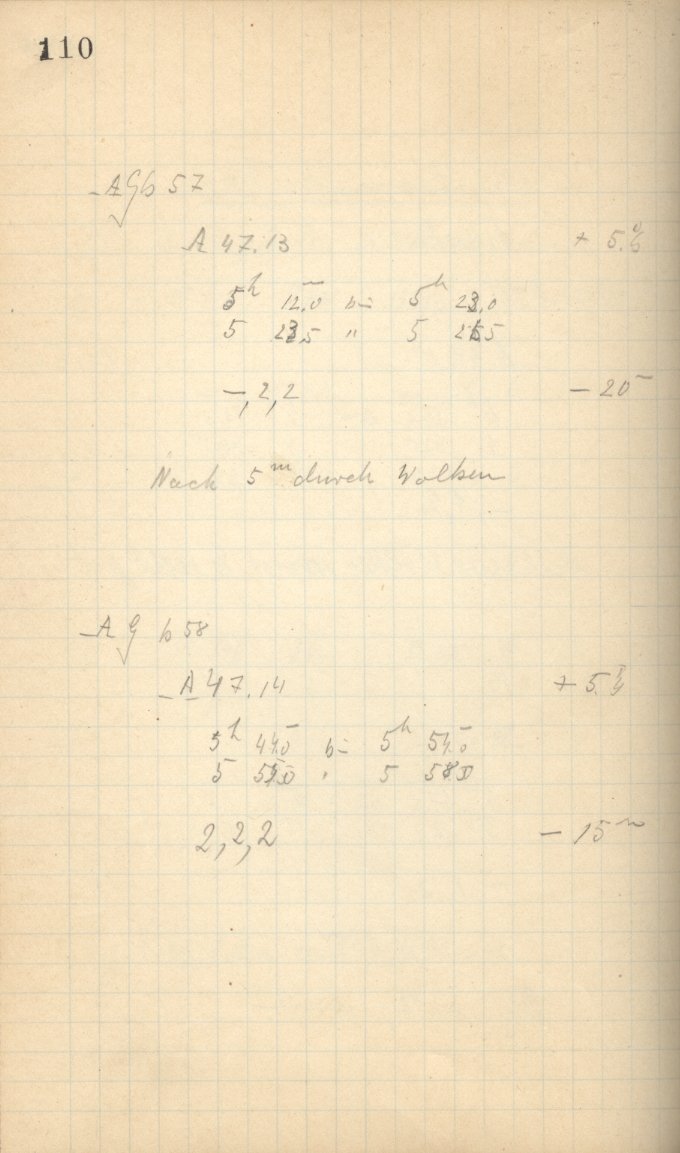 110
AG b 57
A 47.13 + 5.
5h 12.0 bis 5h 23.0
5 23.5 " 5 25.5
–, 2, 2 – 20m
Nach 5m durch Wolken
AG b 58
A 47.14 + 5.
5h 44.0 bis 5h 54.0
5 " 5
2, 2, 2 – 15m